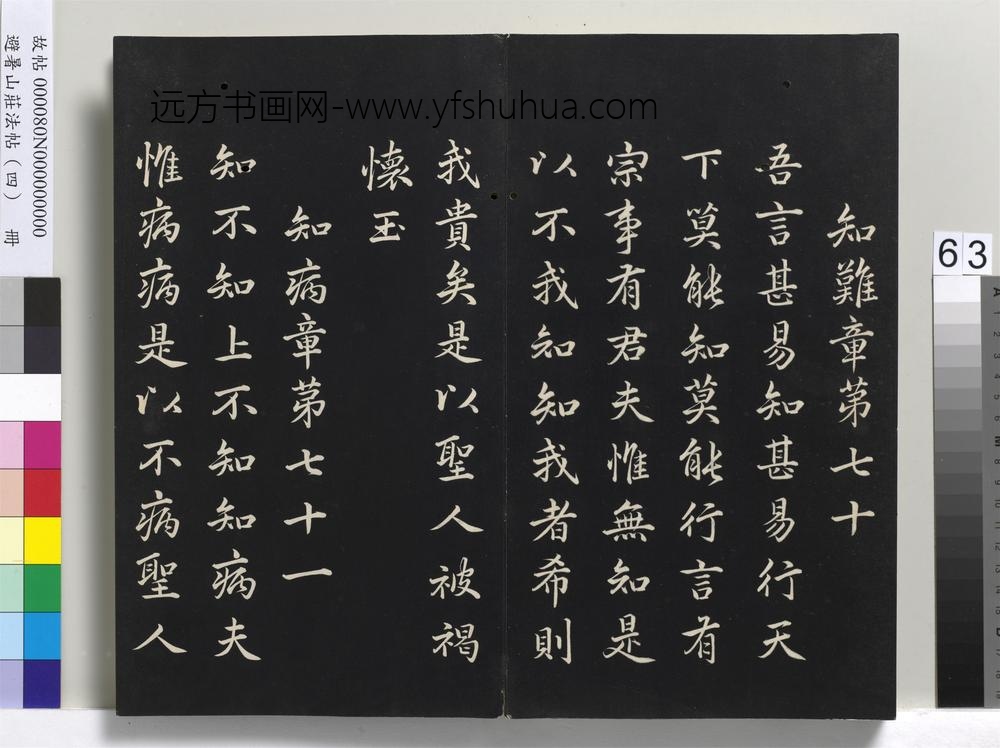 知難章第七十
吾言甚易知甚易行天
下莫能知莫能行言有
宗事有君夫惟無知是
以不我知知我者希則
我貴矣是以聖人被褐
懷玉
知病章第七十一
知不知上不知知病夫
惟病病是以不病聖人
远方书画网-www.yfshuhua.com
故帖000080N000000000
避暑山莊法帖（四） 冊
63